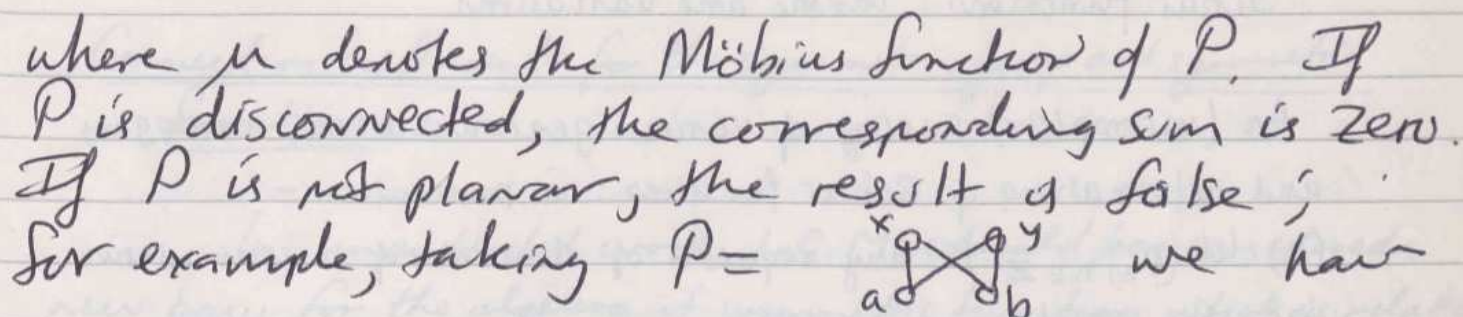 where μ denotes the Möbius function of P. If
P is disconnected, the corresponding sum is zero.
If P is not planar, the result is false;
for example, taking P = x y a b we have